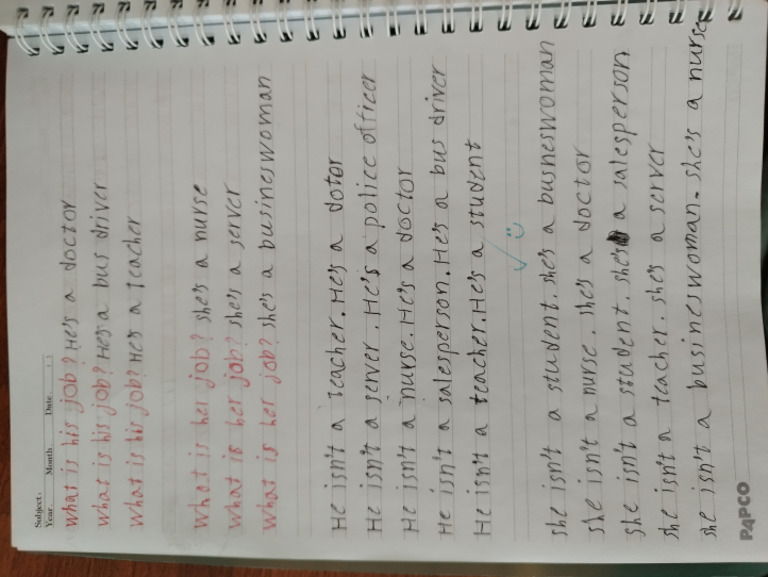 Subject:
Year. Month. Date. ( )
what is his job? He's a doctor
what is his job? He's a bus driver
what is his job? He's a teacher
what is her job? she's a nurse
what is her job? she's a server
what is her job? she's a businesswoman
He isn't a teacher. He's a dotor
He isn't a server. He's a police officer
He isn't a nurse. He's a doctor
He isn't a salesperson. He's a bus driver
He isn't a teacher. He's a student
she isn't a student. she's a busneswoman
she isn't a nurse. she's a doctor
she isn't a student. she's a salesperson
she isn't a teacher. she's a server
she isn't a businesswoman. she's a nurse
PAPCO